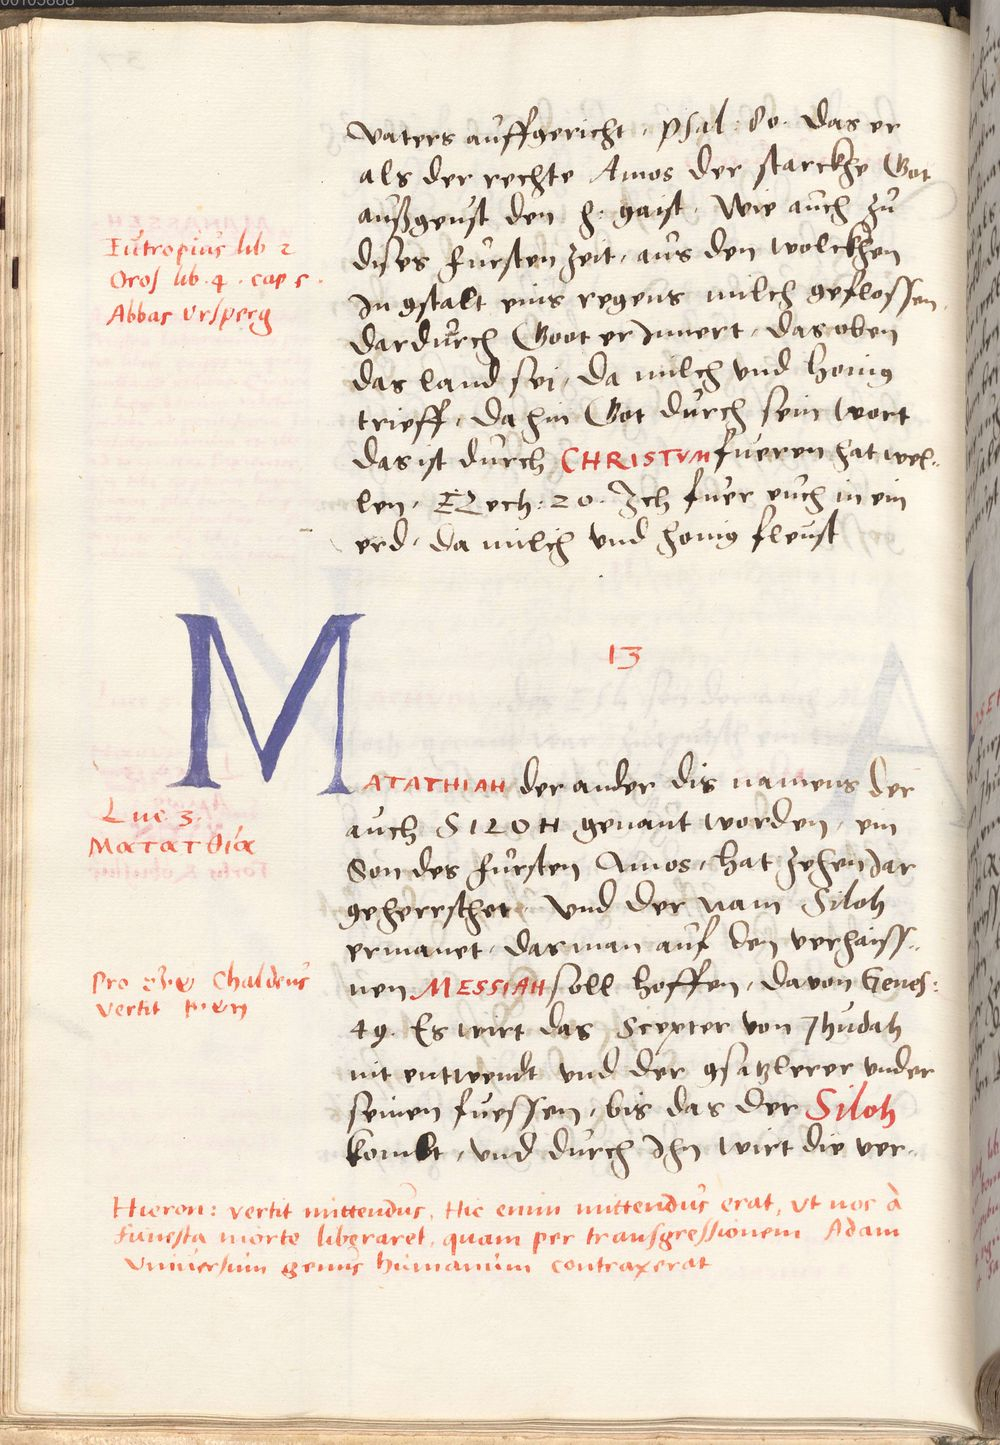 vaters auffgericht. psal: 80. Das er
als der rechte Amos der starckhe Got
außgeust den h. gaist. Wie auch zu
Eutropius lib 2
dises fursten zeit, aus den wolckhen
Oros lib. 4. cap 5.
In gstalt eins regens milch geflossen,
Abbas Ursperg
dardurch Goot erInnert, das oben
das land sei, da milch und honig
trieff, da hin Got durch sein wort
das ist durch CHRISTUM fueren hat wel-
len, EZech: 20. Ich fuer euch in ein
erd, da milch und honig fleust
13
MATATHIAH der ander dis namens der
Luc 3.
auch SILOH genant worden, ein
Ματατθία
Son des fursten Amos, hat zehen Jar
geherrschet, Und der nam Siloh
ermanet, das man auf den verhaiss-
Pro Chaldeus
nen MESSIAH soll hoffen, davon Genes:
vertit
49. Es wirt das Scepter von Jhudah
nit entwendt und der gsatzlerer under
seinen fuessen, bis das der Siloh
kombt, und durch Ihn wirt die ver-
Hieron: vertit mittendus, Hic enim mittendus erat, ut nos à
funesta morte liberaret, quam per transgressionem Adam
universum genus humanum contraxerat